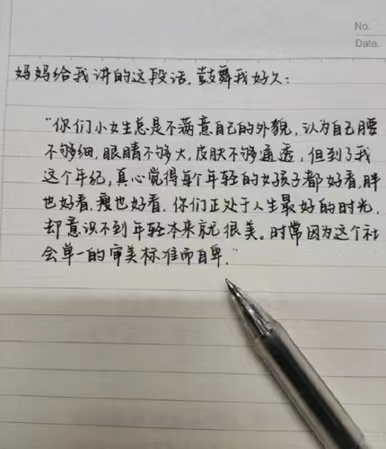 No.
Date.
妈妈给我讲的这段话，鼓舞我好久：
“你们小女生总是不满意自己的外貌，认为自己腰
不够细，眼睛不够大，皮肤不够通透，但到了我
这个年纪，真心觉得每个年轻的女孩子都好看，胖
也好看，瘦也好看，你们正处于人生最好的时光，
却意识不到年轻本来就很美。时常因为这个社
会单一的审美标准而自卑。”